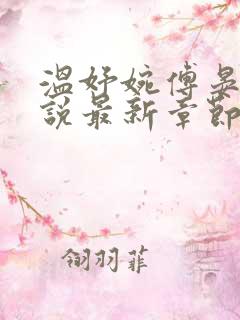 温妤婉傅晏
說最新章節
翎羽菲